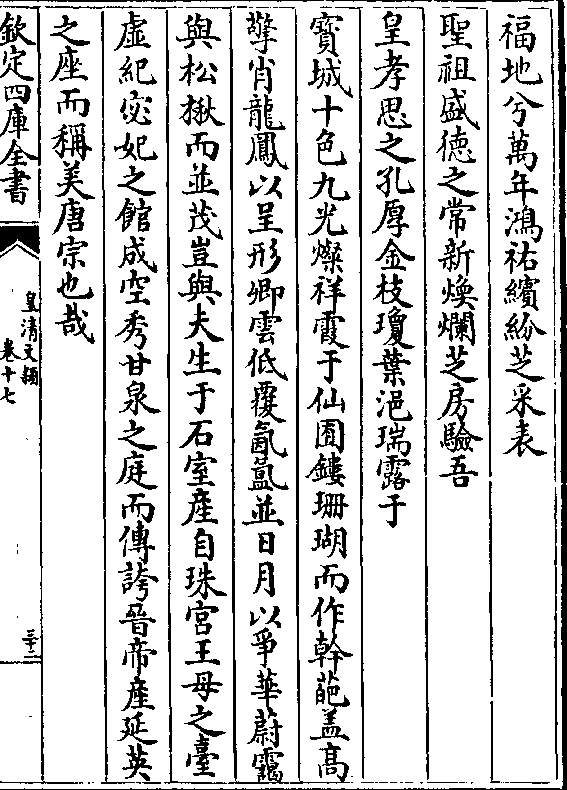 福地兮萬年鴻祐繽紛芝采表
聖祖盛徳之常新煥爛芝房驗吾
皇孝思之孔厚金枝瓊葉浥瑞露于
寳城十色九光燦祥霞于仙囿鏤珊瑚而作幹葩盖髙
擎肖龍鳳以呈形卿雲低覆氤氲並日月以爭華蔚靄
與松楸而並茂豈與夫生于石室産自珠宮王母之臺
虚紀宓妃之館成空秀甘泉之庭而傳誇晉帝産延英
之座而稱美唐宗也哉
欽定四庫全書
皇清文頴
卷十七
三十二